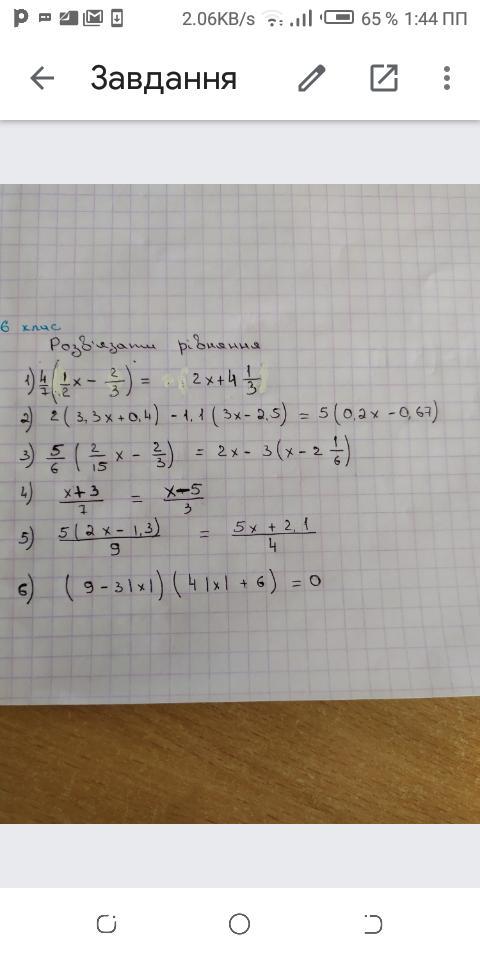 2.06KB/s 65 % 1:44 ПП
Завдання
6 клас
Розв'язати рівняння
1) 4/7 (1/2 x - 2/3) = 2x + 4 1/3
2) 2(3,3x+0,4) - 1,1(3x-2,5) = 5(0,2x-0,67)
3) 5/6 (2/15 x - 2/3) = 2x - 3(x - 2 1/6)
4) x+3/7 = x-5/3
5) 5(2x-1,3)/9 = 5x+2,1/4
6) (9-3|x|)(4|x|+6) = 0